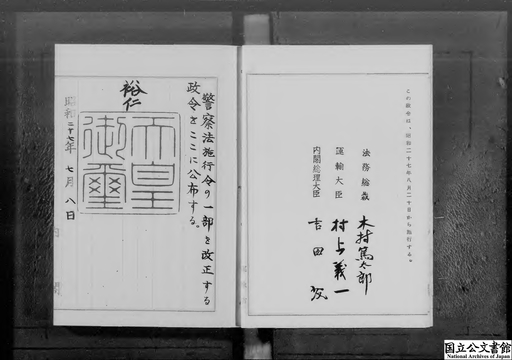 この政令は、昭和二十七年八月二十日から施行する。
法務総裁 木村篤太郎
運輸大臣 村上義一
内閣総理大臣 吉田茂
警察法施行令の一部を改正する
政令をここに公布する。
裕仁
天皇
御璽
昭和二十七年 七月 八日
国立公文書館
National Archives of Japan